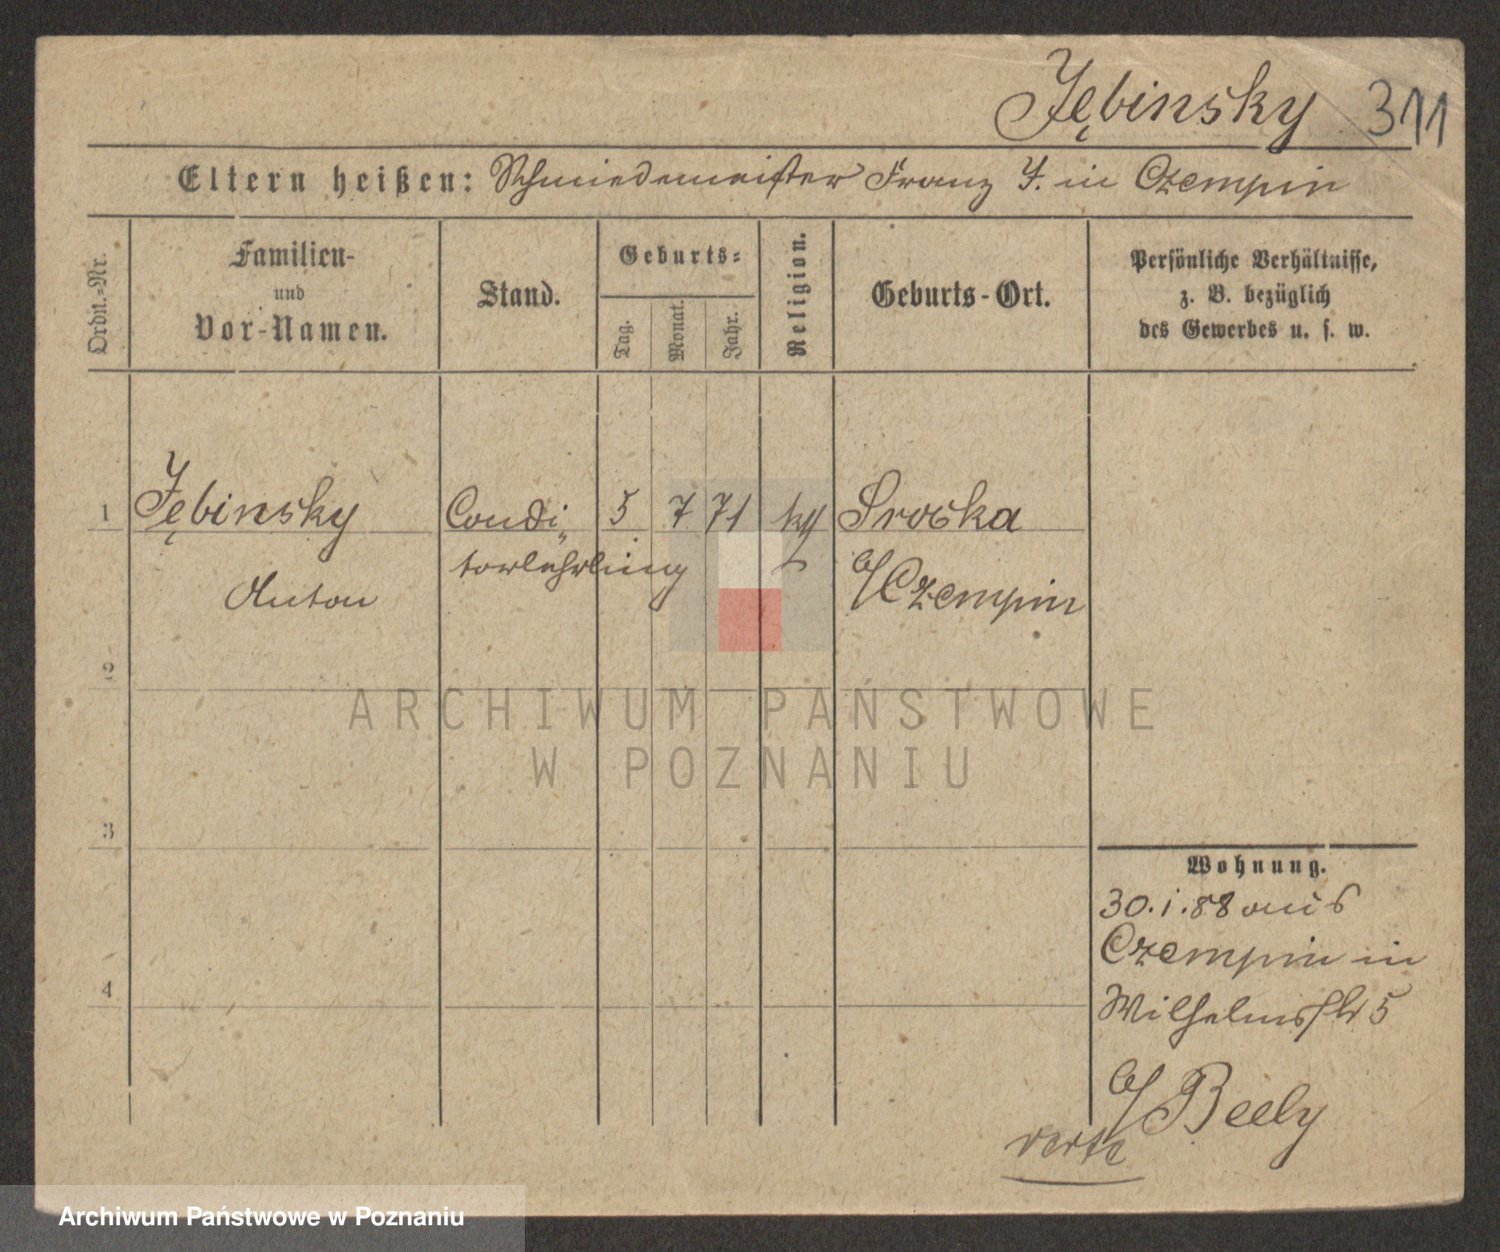 Jębinsky 311
Eltern heißen: Schmiedemeister Franz J. in Czempin
Ordn.-Nr.
Familien-
und
Vor-Namen.
Stand.
Geburts-
Tag.
Monat.
Jahr.
Religion.
Geburts-Ort.
Persönliche Verhältnisse,
z. B. bezüglich
des Gewerbes u. s. w.
1 Jębinsky Condi 5 7 71 Sroska
torlehrling
Anton
b/Czempin
2
ARCHIWUM PAŃSTWOWE
W POZNANIU
3
4
Wohnung.
30.1.88 aus
Czempin in
Wilhelms 5
b/Beely
verte
Archiwum Państwowe w Poznaniu